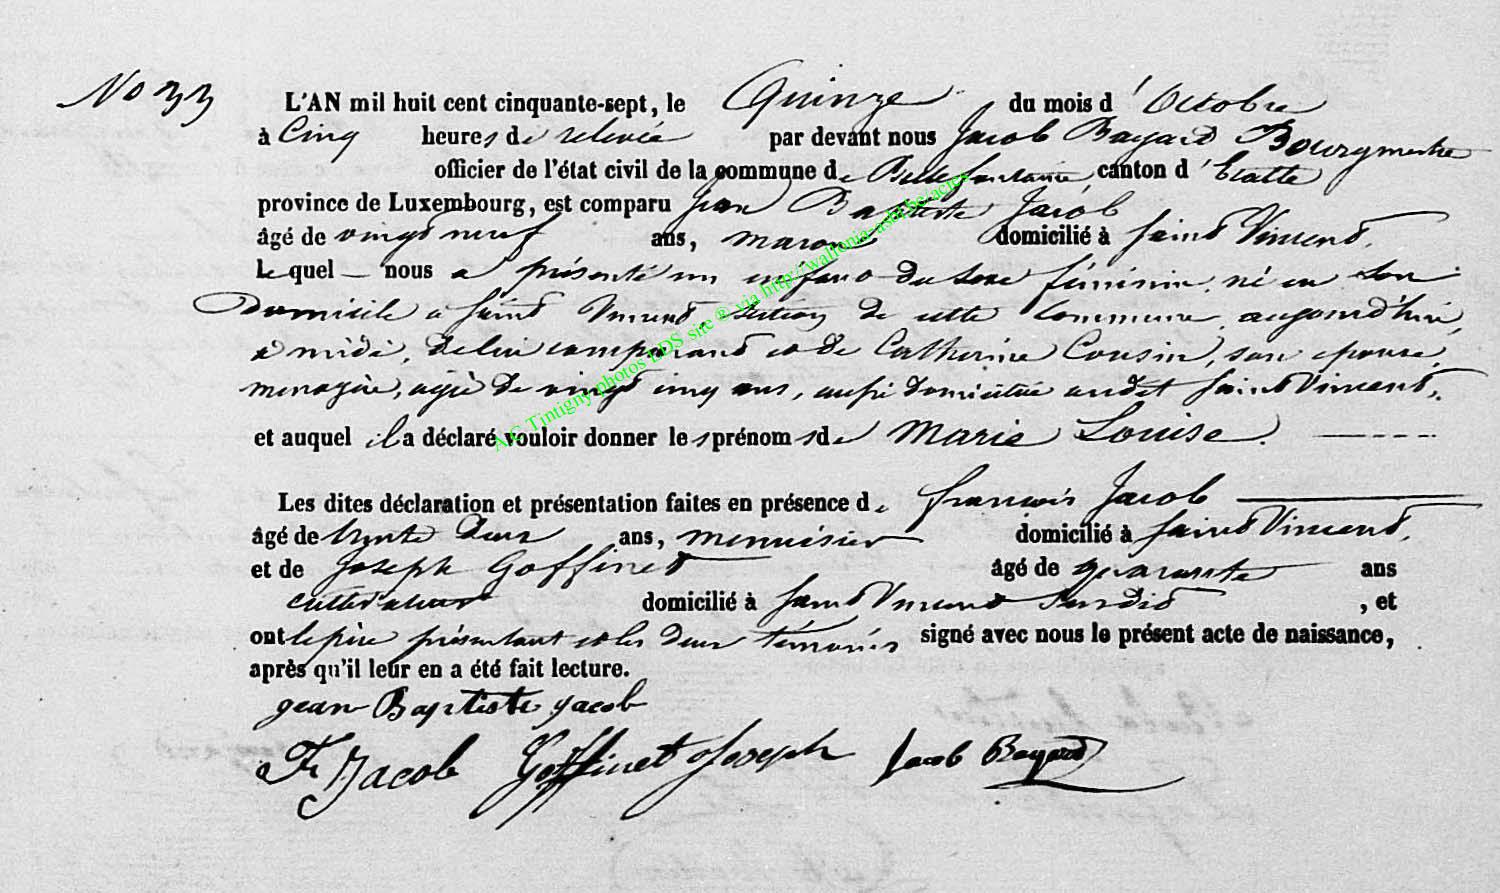 No 33
L'AN mil huit cent cinquante-sept, le Quinze du mois d'Octobre
à Cinq heures de relevée par devant nous Jacob Bayard Bourgmestre
officier de l'état civil de la commune de Bellefontaine, canton d'Etalle
province de Luxembourg, est comparu Jean Baptiste Jacob
âgé de vingt neuf ans, maron domicilié à Saint Vincent,
Le quel nous a présenté un enfant du sexe féminin, né en son
Domicile à Saint Vincent, section de cette Commune, aujourd'hui,
à midi, de lui comparant et de Catherine Cousin, son epouse,
menagère, agée de vingt cinq ans, aussi domiciliée audit Saint Vincent,
et auquel il a déclaré vouloir donner les prénoms de Marie Louise.
Les dites déclaration et présentation faites en présence de françois Jacob
âgé de trente deux ans, menuisier domicilié à Saint Vincent,
et de Joseph Goffinet âgé de quarante ans
cultivateur domicilié à Saint Vincent susdit, et
ont le père présentant et les deux témoins signé avec nous le présent acte de naissance,
après qu'il leur en a été fait lecture.
jean Baptiste jacob
Fr Jacob Goffinet Joseph Jacob Bayard
A/C Tintigny photos LDS site ® via http://wallonia-asbl.be/actes